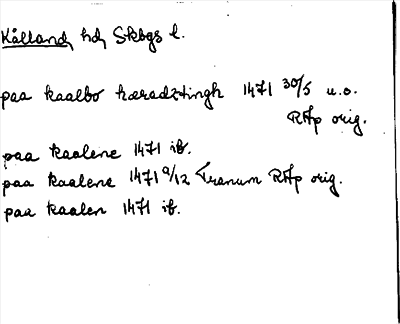 Kålland, hd, Skbgs l.
paa kaalbo hæradztingh 1471 30/5 u.o.
RAp orig.
paa kaalene 1471 ib.
paa kaalene 1471 9/12 Tranum RAp orig.
paa kaalen 1471 ib.